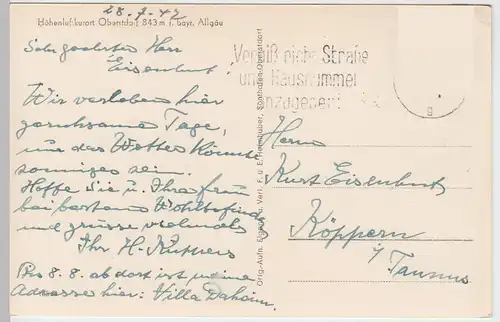 28-7-42
Höhenluftkurort Oberstdorf 843 m i. bayr. Allgäu
Sehr geehrter Herr
Eisenbut!
Wir verleben hier
geruhsame Tage,
nur das Wetter könnte
sonniges sein.
Hoffe Sie u. Ihre frau
bei bestem Wohlbefinden
und grüsse vielmals
Ihr H. Küppers
Bis 8.8. ab dort ist meine
Adresse hier: Villa Daheim.
Orig.-Aufn. Eigent. u. Verl. F. u. E. Heimhuber, Sonthofen-Oberstdorf
Vergiß nicht Straße
und Hausnummer
anzugeben!
g
Herrn
Kurt Eisenbut
Köppern
i/ Taunus